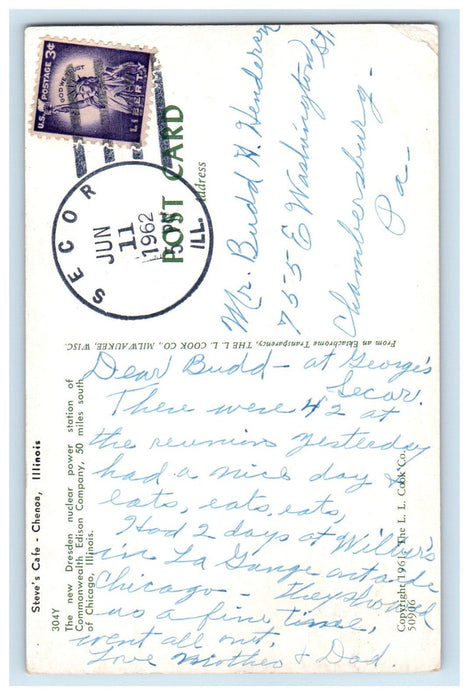 U.S. POSTAGE 3¢
IN GOD WE TRUST
LIBERTY
SECOR
JUN
11
1962
ILL.
POST CARD
Address
Mr. Budd H. Henderson
755 E Washington St,
Chambersburg
Pa-
From an Ektachrome Transparency, THE L. L. COOK CO., MILWAUKEE, WISC.
Steve's Cafe - Chenoa, Illinois
304Y
The new Dresden nuclear power station of
Commonwealth Edison Company, 50 miles south
of Chicago, Illinois.
Dear Budd - at George's
Secor.
There were 42 at
the reunion yesterday
had a nice day &
eats, eats, eats,
Had 2 days at Wilber's
in La Grange outside
Chicago - they showed
us a fine time,
went all out.
Love Mother & Dad.
Copyright 1961, The L. L. Cook Co.
50906